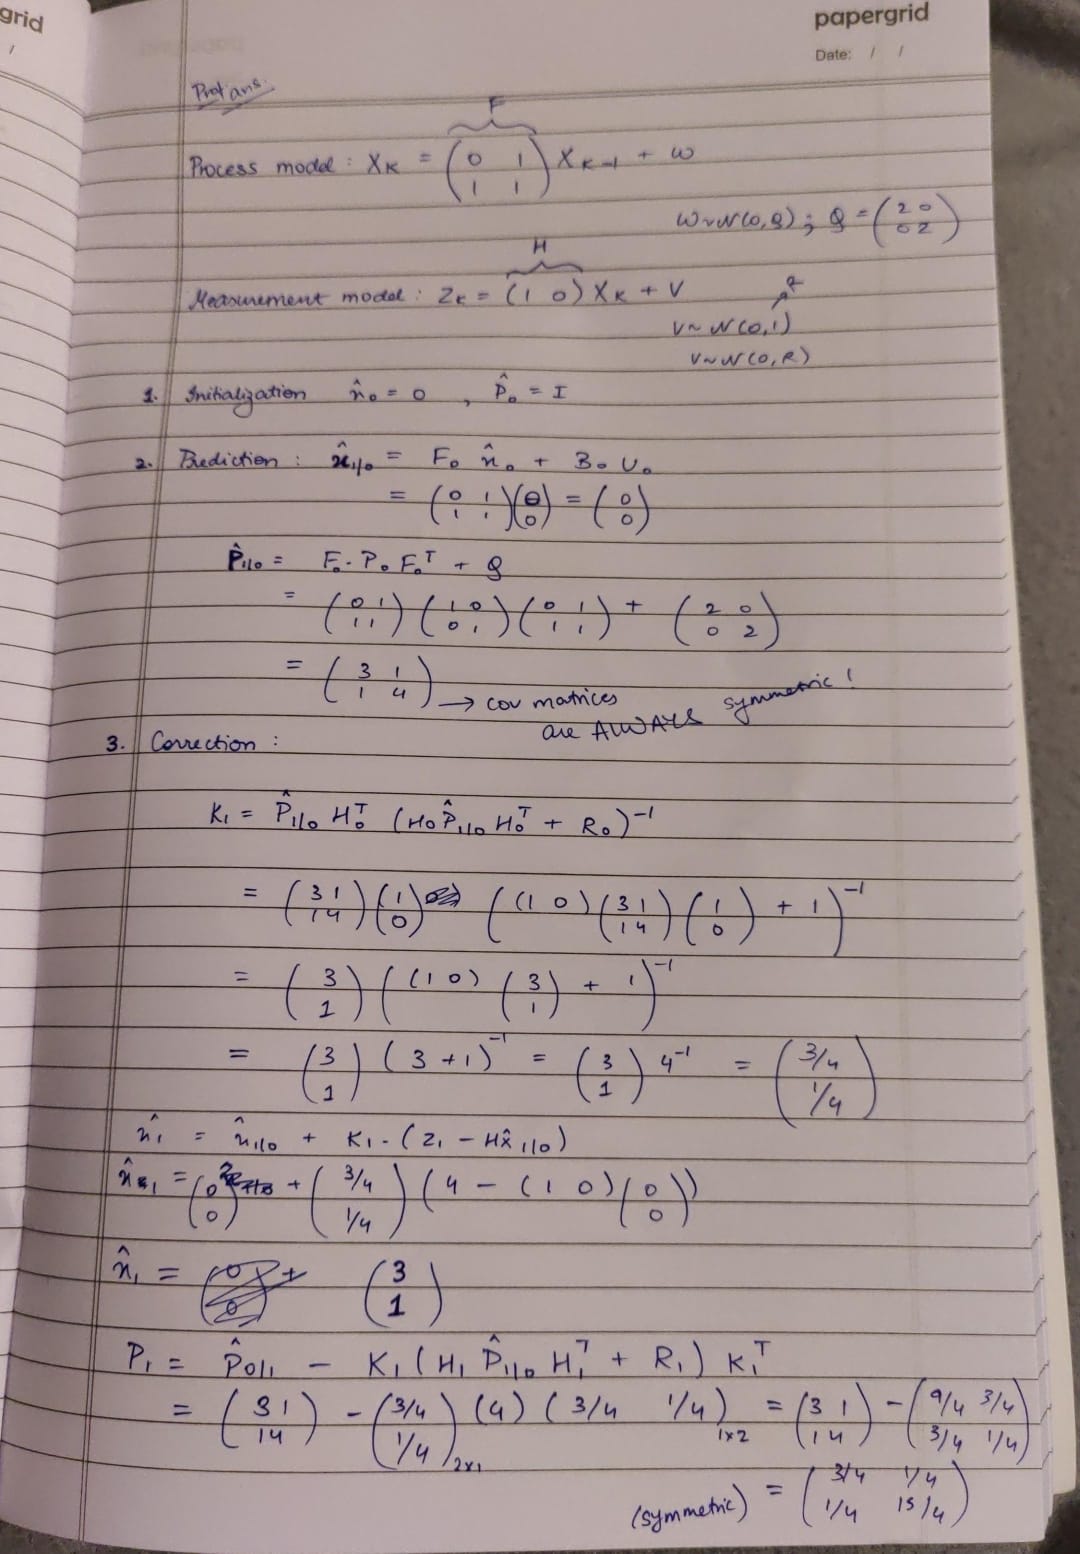 grid
/
papergrid
Date: / /
Prof ans.
F
Process model : X_K = (0 1; 1 1) X_{K-1} + w
w ~ N(0,Q) ; Q = (2 0; 0 2)
H
Measurement model : Z_K = (1 0) X_K + V
V ~ N(0,1)
V ~ N(0,R)
1. Initialization x̂_0 = 0 , P̂_0 = I
2. Prediction : x̂_{1|0} = F_0 x̂_0 + B_0 U_0
= (0 1; 1 1)(0; 0) = (0; 0)
P̂_{1|0} = F_0 . P_0 F_0^T + Q
= (0 1; 1 1) (1 0; 0 1) (0 1; 1 1) + (2 0; 0 2)
= (3 1; 1 4) → cov matrices
are ALWAYS symmetric !
3. Correction :
K_1 = P̂_{1|0} H_0^T (H_0 P̂_{1|0} H_0^T + R_0)^{-1}
= (3 1; 1 4)(1; 0) ((1 0)(3 1; 1 4)(1; 0) + 1)^{-1}
= (3; 1) ((1 0) (3; 1) + 1)^{-1}
= (3; 1) (3 + 1)^{-1} = (3; 1) 4^{-1} = (3/4; 1/4)
x̂_1 = x̂_{1|0} + K_1 . (Z_1 - Hx̂_{1|0})
x̂_1 = (0; 0) + (3/4; 1/4) (4 - (1 0)(0; 0))
x̂_1 = (3; 1)
P_1 = P̂_{0|1} - K_1 (H_1 P̂_{1|0} H_1^T + R_1) K_1^T
= (3 1; 1 4) - (3/4; 1/4)_{2x1} (4) (3/4 1/4)_{1x2} = (3 1; 1 4) - (9/4 3/4; 3/4 1/4)
(symmetric) = (3/4 1/4; 1/4 15/4)